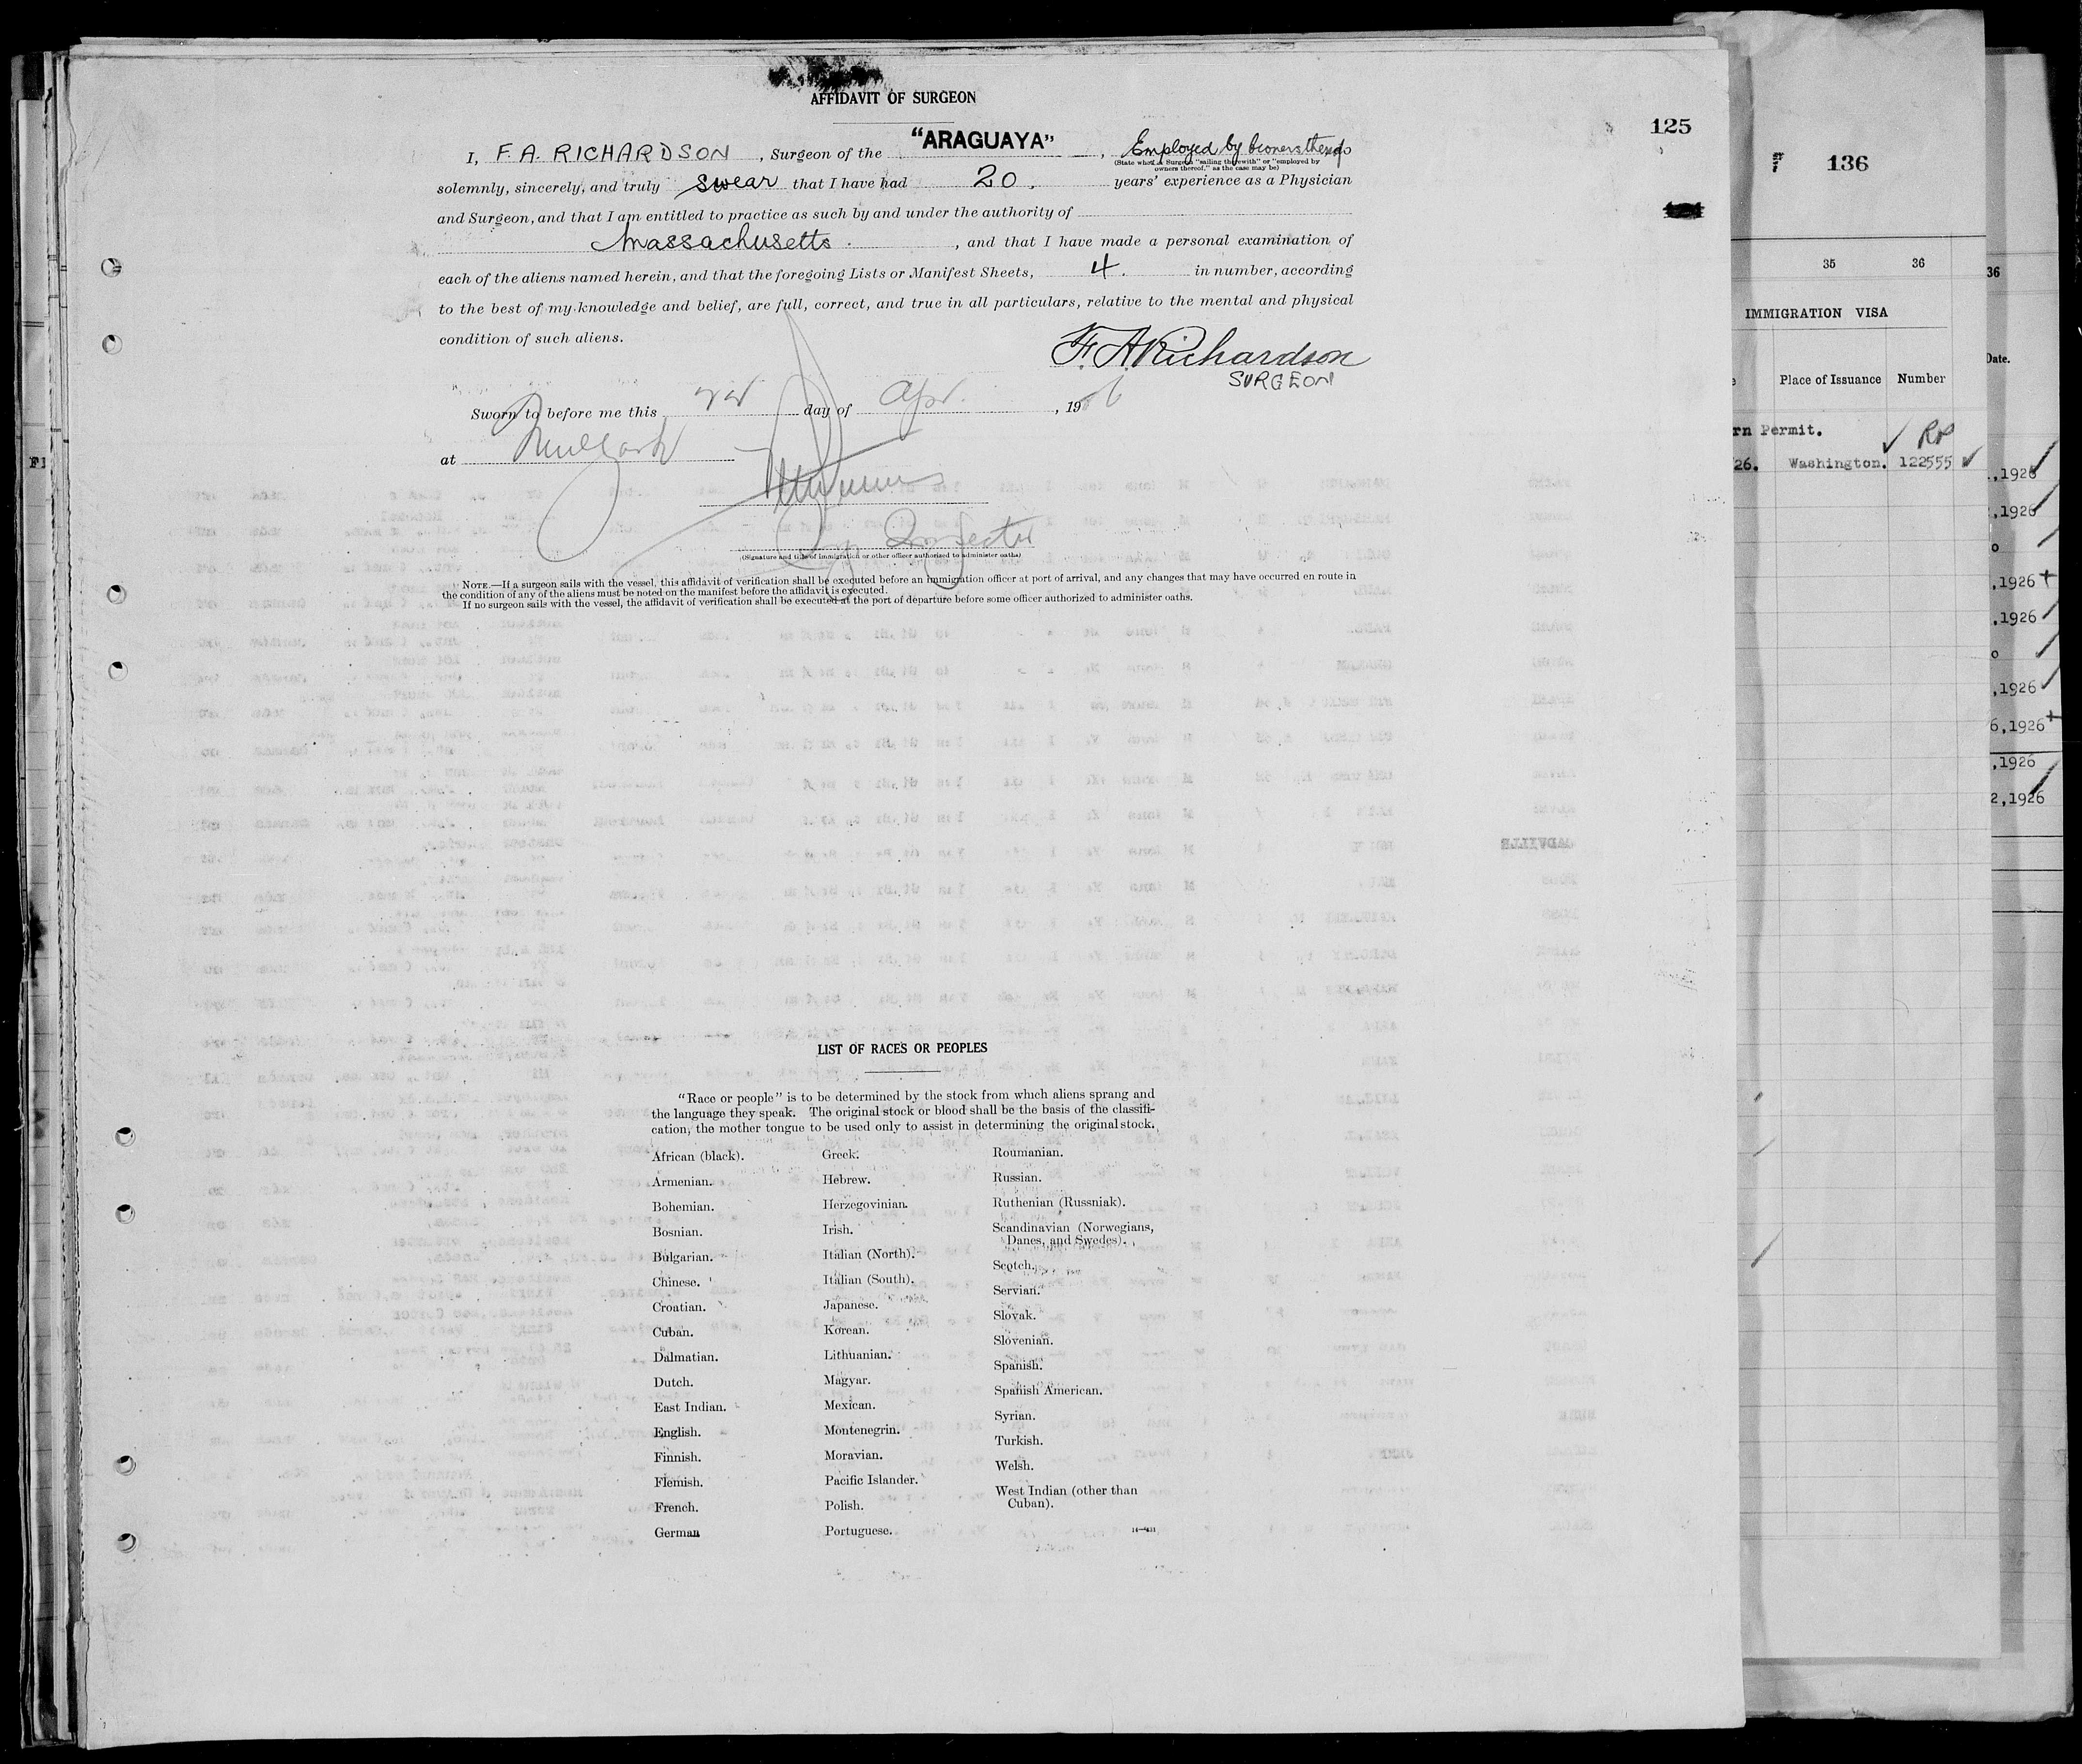 AFFIDAVIT OF SURGEON
125
I, F. A. RICHARDSON, Surgeon of the "ARAGUAYA", Employed by owners thereof do
(State whether Surgeon "sailing therewith" or "employed by
owners thereof," as the case may be)
solemnly, sincerely, and truly swear that I have had 20. years' experience as a Physician
and Surgeon, and that I am entitled to practice as such by and under the authority of
Massachusetts. , and that I have made a personal examination of
each of the aliens named herein, and that the foregoing Lists or Manifest Sheets, 4. in number, according
to the best of my knowledge and belief, are full, correct, and true in all particulars, relative to the mental and physical
condition of such aliens.
F. A. Richardson
SURGEON
Sworn to before me this day of Apr. , 19 6
at New York
Inspector
(Signature and title of immigration or other officer authorized to administer oaths)
NOTE.—If a surgeon sails with the vessel, this affidavit of verification shall be executed before an immigration officer at port of arrival, and any changes that may have occurred en route in
the condition of any of the aliens must be noted on the manifest before the affidavit is executed.
If no surgeon sails with the vessel, the affidavit of verification shall be executed at the port of departure before some officer authorized to administer oaths.
LIST OF RACES OR PEOPLES
"Race or people" is to be determined by the stock from which aliens sprang and
the language they speak. The original stock or blood shall be the basis of the classifi-
cation, the mother tongue to be used only to assist in determining the original stock.
African (black).
Armenian.
Bohemian.
Bosnian.
Bulgarian.
Chinese.
Croatian.
Cuban.
Dalmatian.
Dutch.
East Indian.
English.
Finnish.
Flemish.
French.
German
Greek.
Hebrew.
Herzegovinian.
Irish.
Italian (North).
Italian (South).
Japanese.
Korean.
Lithuanian.
Magyar.
Mexican.
Montenegrin.
Moravian.
Pacific Islander.
Polish.
Portuguese.
Roumanian.
Russian.
Ruthenian (Russniak).
Scandinavian (Norwegians,
Danes, and Swedes).
Scotch.
Servian.
Slovak.
Slovenian.
Spanish.
Spanish American.
Syrian.
Turkish.
Welsh.
West Indian (other than
Cuban).
136
35 36
IMMIGRATION VISA
Place of Issuance Number
rn Permit. RP
26. Washington. 122555
36
Date.
,1926
,1926
o
,1926
,1926
o
,1926
6,1926
,1926
2,1926